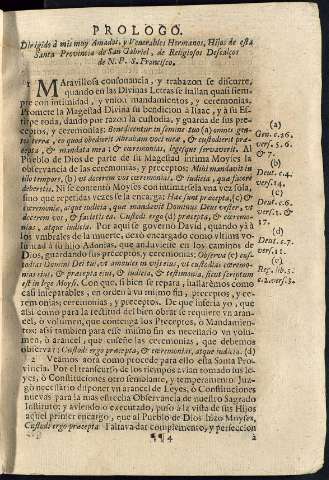 PROLOGO.
Dirigido à mis muy Amados, y Venerables Hermanos, Hijos de esta
Santa Provincia de San Gabriel, de Religiosos Descalços
de N. P. S. Francisco.
1 MAravillosa consonancia, y trabazon se discurre,
quando en las Divinas Letras se hallan quasi siem-
pre con intimidad, y vnion, mandamientos, y ceremonias.
Promete la Magestad Divina su bendicion à Isaac, y à su El-
tirpe toda, dando por razon la custodia, y guarda de sus pre-
ceptos, y ceremonias: Benedicentur in semine tuo (a) omnes gen-
tes terræ, eo quod obedierit Abraham voci meæ, & custodierit præ-
cepta, & mandata mea; & ceremonias, legesque servaverit. Al
Pueblo de Dios de parte de su Magestad intima Moyses la
observacion de las ceremonias, y preceptos: Mihi mandavit in
illo tempore, (b) vt docerem vos ceremonias, & iudicia, quæ facere
deberetis. Ni se contentò Moyses con intimarsela vna vez sola,
sino que repetidas vezes se la encarga: Hæc sunt præcepta, (c) &
ceremoniæ, atque iudicia, quæ mandavit Dominus Deus vester, vt
docerem vos, & faciatis ea. Custodi ergo (d) præcepta, & ceremo-
nias, atque iudicia. Por aqui se governò David, quando yà à
los vmbrales de la muerte, dexò encargado como vltima vo-
luntad à su hijo Adonias, que anduviesse en los caminos de
Dios, guardando sus preceptos, y ceremonias: Observa (e) cus-
todias Domini Dei tui, vt ambules in vijs eius, vt custodias ceremo-
nias eius, & præcepta eius, & iudicia, & testimonia, sicut scriptum
est in lege Moysi. Con que, si bien se repara, hallarèmos como
casi inseparables, en orden à vn mismo fin, preceptos, y cere-
monias; ceremonias, y preceptos. De que infiero yo, que
assi como para la rectitud del bien obrar se requiere vn aran-
cel, ò volumen, que contenga los Preceptos, ò Mandamien-
tos; assi tambien para este mismo fin es necessario vn volu-
men, ò arancel, que diseñe las ceremonias, que debemos
observar: Custodi ergo præcepta, & ceremonias, atque iudicia. (d)
2 Veamos aora como procede para ello esta Santa Pro-
vincia. Por el transcurso de los tiempos avian tomado sus le-
yes, ò Constituciones otro semblante, y temperamento. Juz-
gò necessario disponer vn arancel de Leyes, ò Constituciones
nuevas para la mas estrecha Observancia de nuestro Sagrado
Instituto; y aviendolo executado, puso à la vista de sus Hijos
aquel primer encargo, que al Pueblo de Dios hizo Moyses,
Custodi ergo præcepta. Faltava dar complemento, y perfeccion
¶¶ 4 à
(a)
Gen. c. 26.
vers. 5. 6.
& 7.
(b)
Deut. c. 4.
vers. 14.
(c)
Deut. c. 6.
vers. 1. &
17.
(d)
Deut. c. 7.
vers. 11.
(e)
Reg. lib. 3.
c. 2. vers. 3.